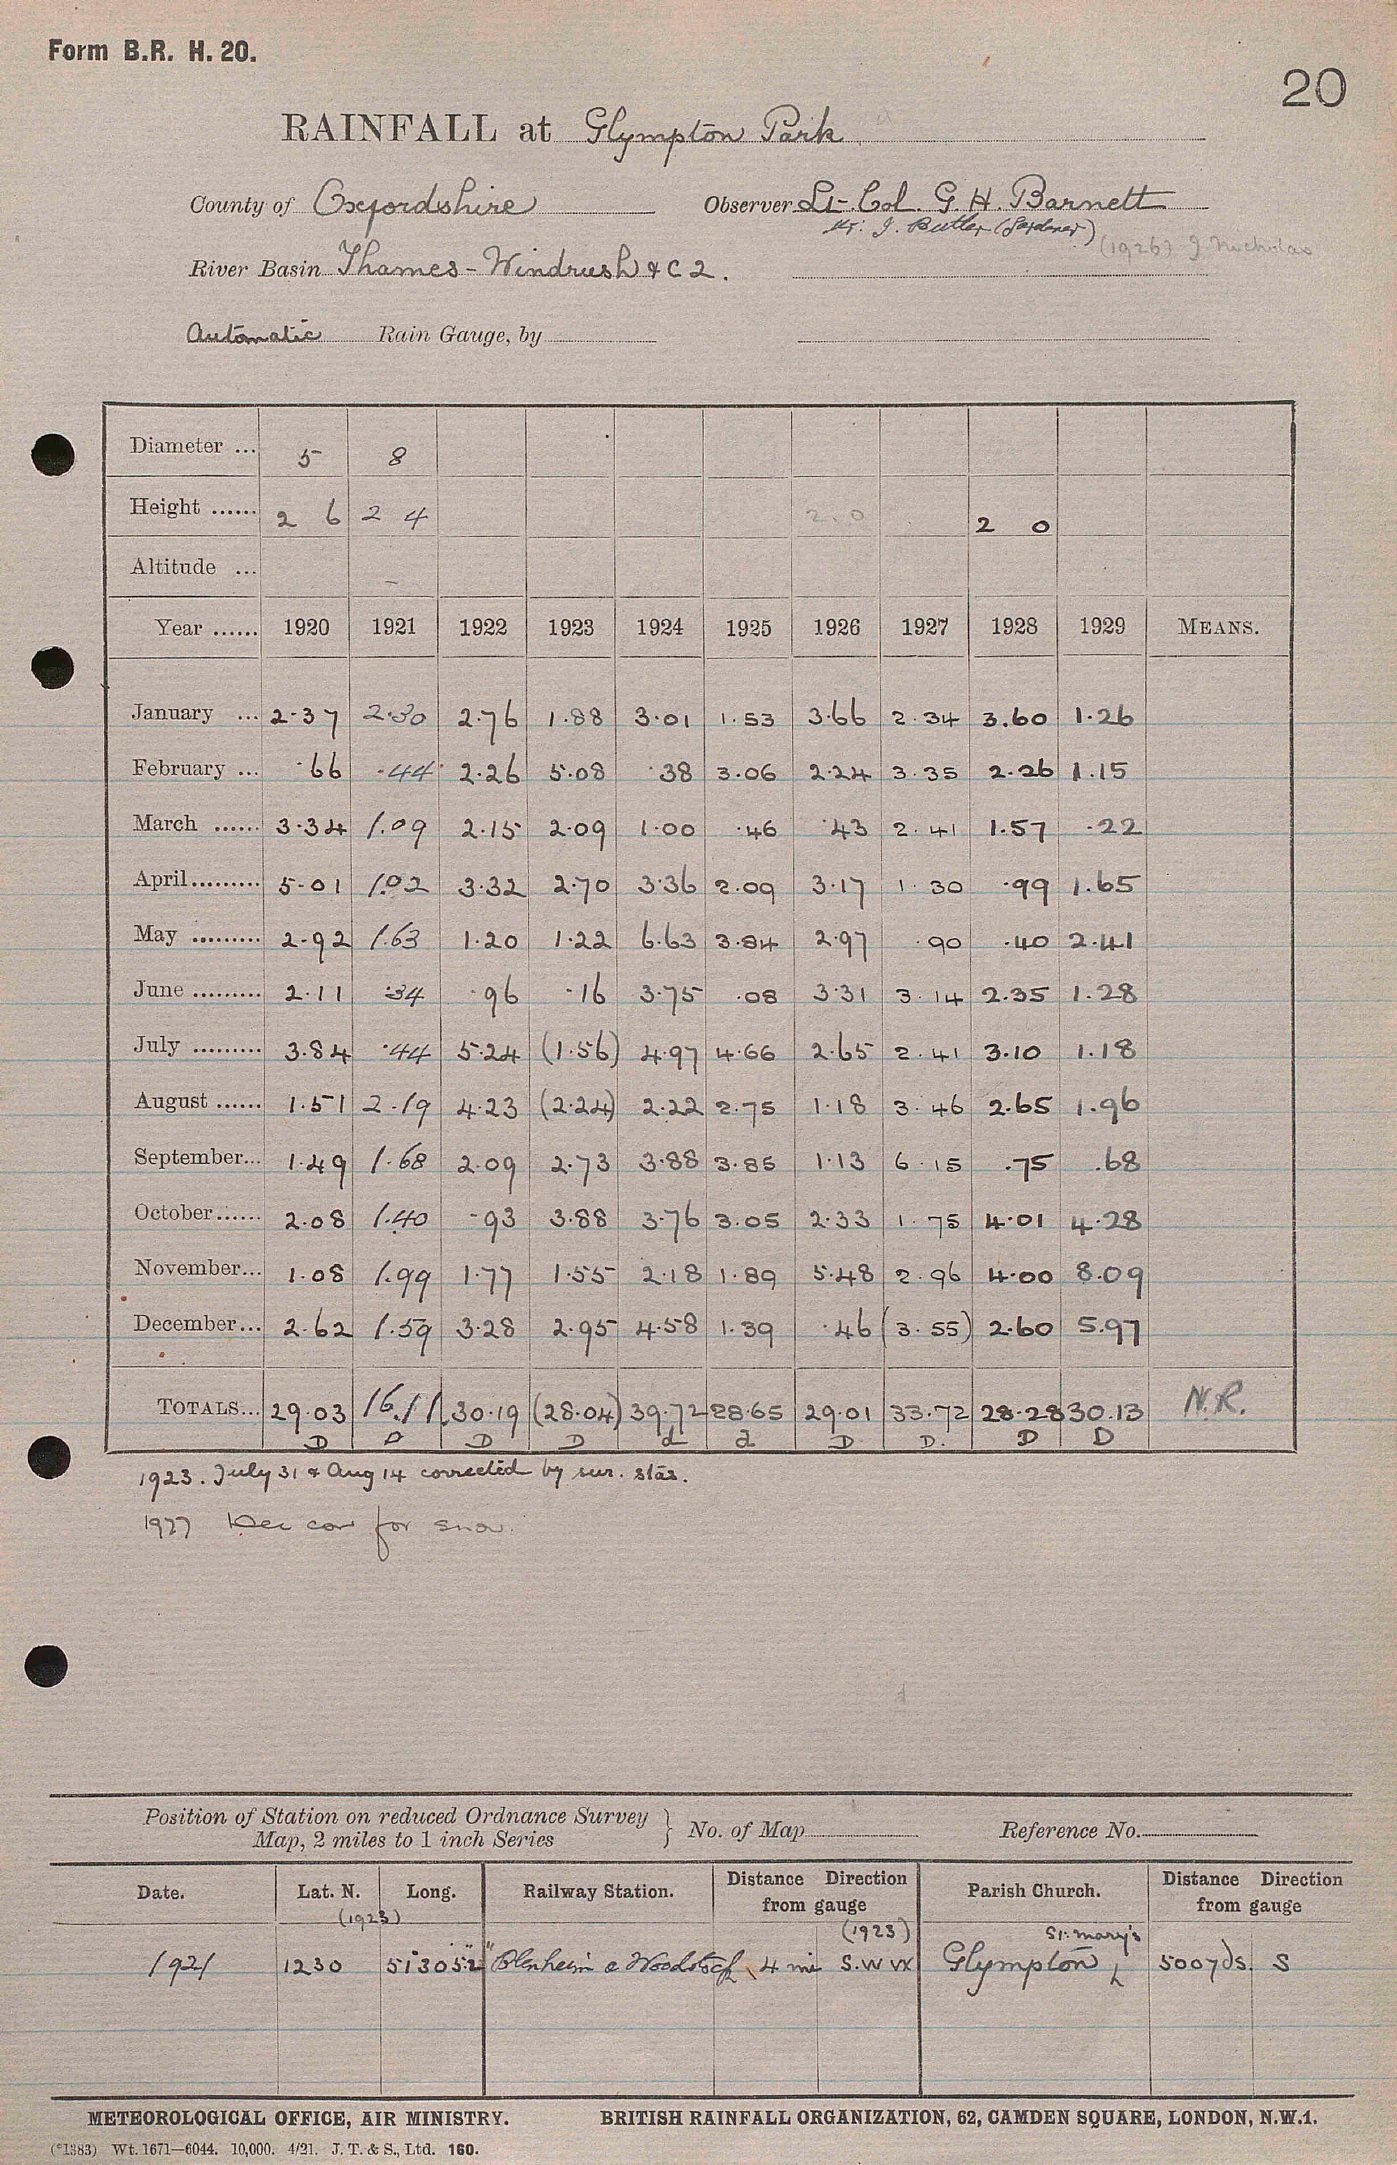 Form B.R. H. 20.
20
RAINFALL at Glympton Park
County of Oxfordshire Observer Lt-Col. G. H. Barnett
Mr. J. Butler (Gardener)
(1926) J. Nicholas
River Basin Thames - Windrush &c 2.
Automatic Rain Gauge, by
Diameter ... 5 8
Height ...... 2 6 2 4 2.0 2 0
Altitude ... –
Year ...... 1920 1921 1922 1923 1924 1925 1926 1927 1928 1929 MEANS.
January ... 2.37 2.30 2.76 1.88 3.01 1.53 3.66 2.34 3.60 1.26
February ... .66 .44 2.26 5.08 .38 3.06 2.24 3.35 2.26 1.15
March ...... 3.34 1.09 2.15 2.09 1.00 .46 .43 2.41 1.57 .22
April......... 5.01 1.02 3.32 2.70 3.36 2.09 3.17 1.30 .99 1.65
May ......... 2.92 1.63 1.20 1.22 6.63 3.84 2.97 .90 .40 2.41
June ......... 2.11 .34 .96 .16 3.75 .08 3.31 3.14 2.35 1.28
July ......... 3.84 .44 5.24 (1.56) 4.97 4.66 2.65 2.41 3.10 1.18
August ...... 1.51 2.19 4.23 (2.24) 2.22 2.75 1.18 3.46 2.65 1.96
September... 1.49 1.68 2.09 2.73 3.88 3.85 1.13 6.15 .75 .68
October...... 2.08 1.40 .93 3.88 3.76 3.05 2.33 1.75 4.01 4.28
November... 1.08 1.99 1.77 1.55 2.18 1.89 5.48 2.96 4.00 8.09
December... 2.62 1.59 3.28 2.95 4.58 1.39 .46 (3.55) 2.60 5.97
TOTALS... 29.03 16.11 30.19 (28.04) 39.72 28.65 29.01 33.72 28.28 30.13 N.R.
D D D D d d D D. D D
1923. July 31 & Aug 14 corrected by sur. stas.
1927 Dec cor for snow.
Position of Station on reduced Ordnance Survey
Map, 2 miles to 1 inch Series } No. of Map Reference No.
Date. Lat. N. Long. Railway Station. Distance Direction from gauge Parish Church. Distance Direction from gauge
(1923) (1923) St. Mary's
1921 1230 513052 "Blenheim & Woodstock 4 mi S.W Glympton 500yds. S
METEOROLOGICAL OFFICE, AIR MINISTRY. BRITISH RAINFALL ORGANIZATION, 62, CAMDEN SQUARE, LONDON, N.W.1.
(*1383) Wt. 1671—6044. 10,000. 4/21. J. T. & S., Ltd. 160.